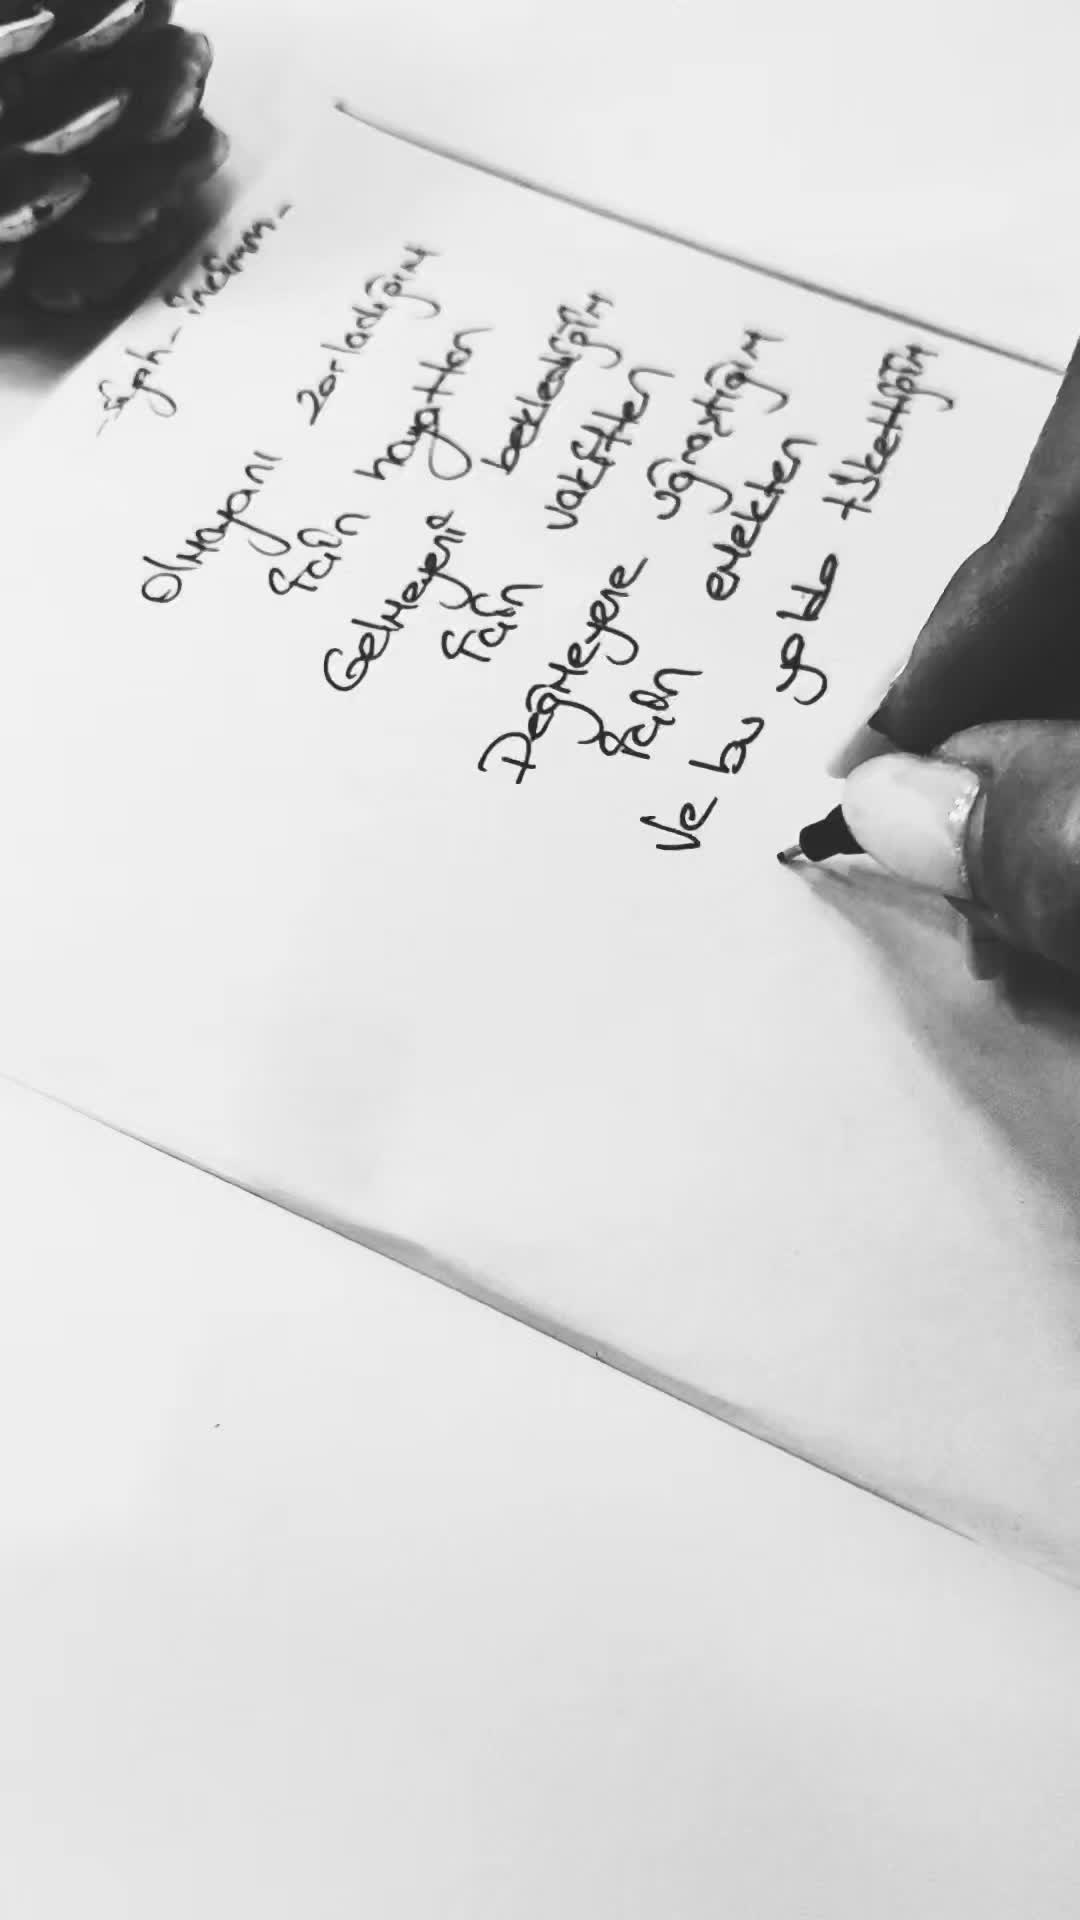 incimm-
Olmayanı zorladığım
için hayattan
Gelmeyeni beklediğim
için vakitten
Değmeyene uğraştığım
için emekten
Ve bu yolda tükettiğim